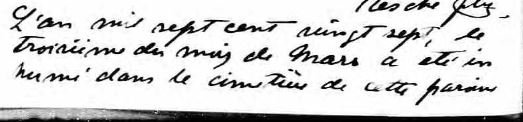 L'an mil sept cent vingt sept, le
troisième du mois de Mars a été in
humé dans le cimetière de cette paroiss